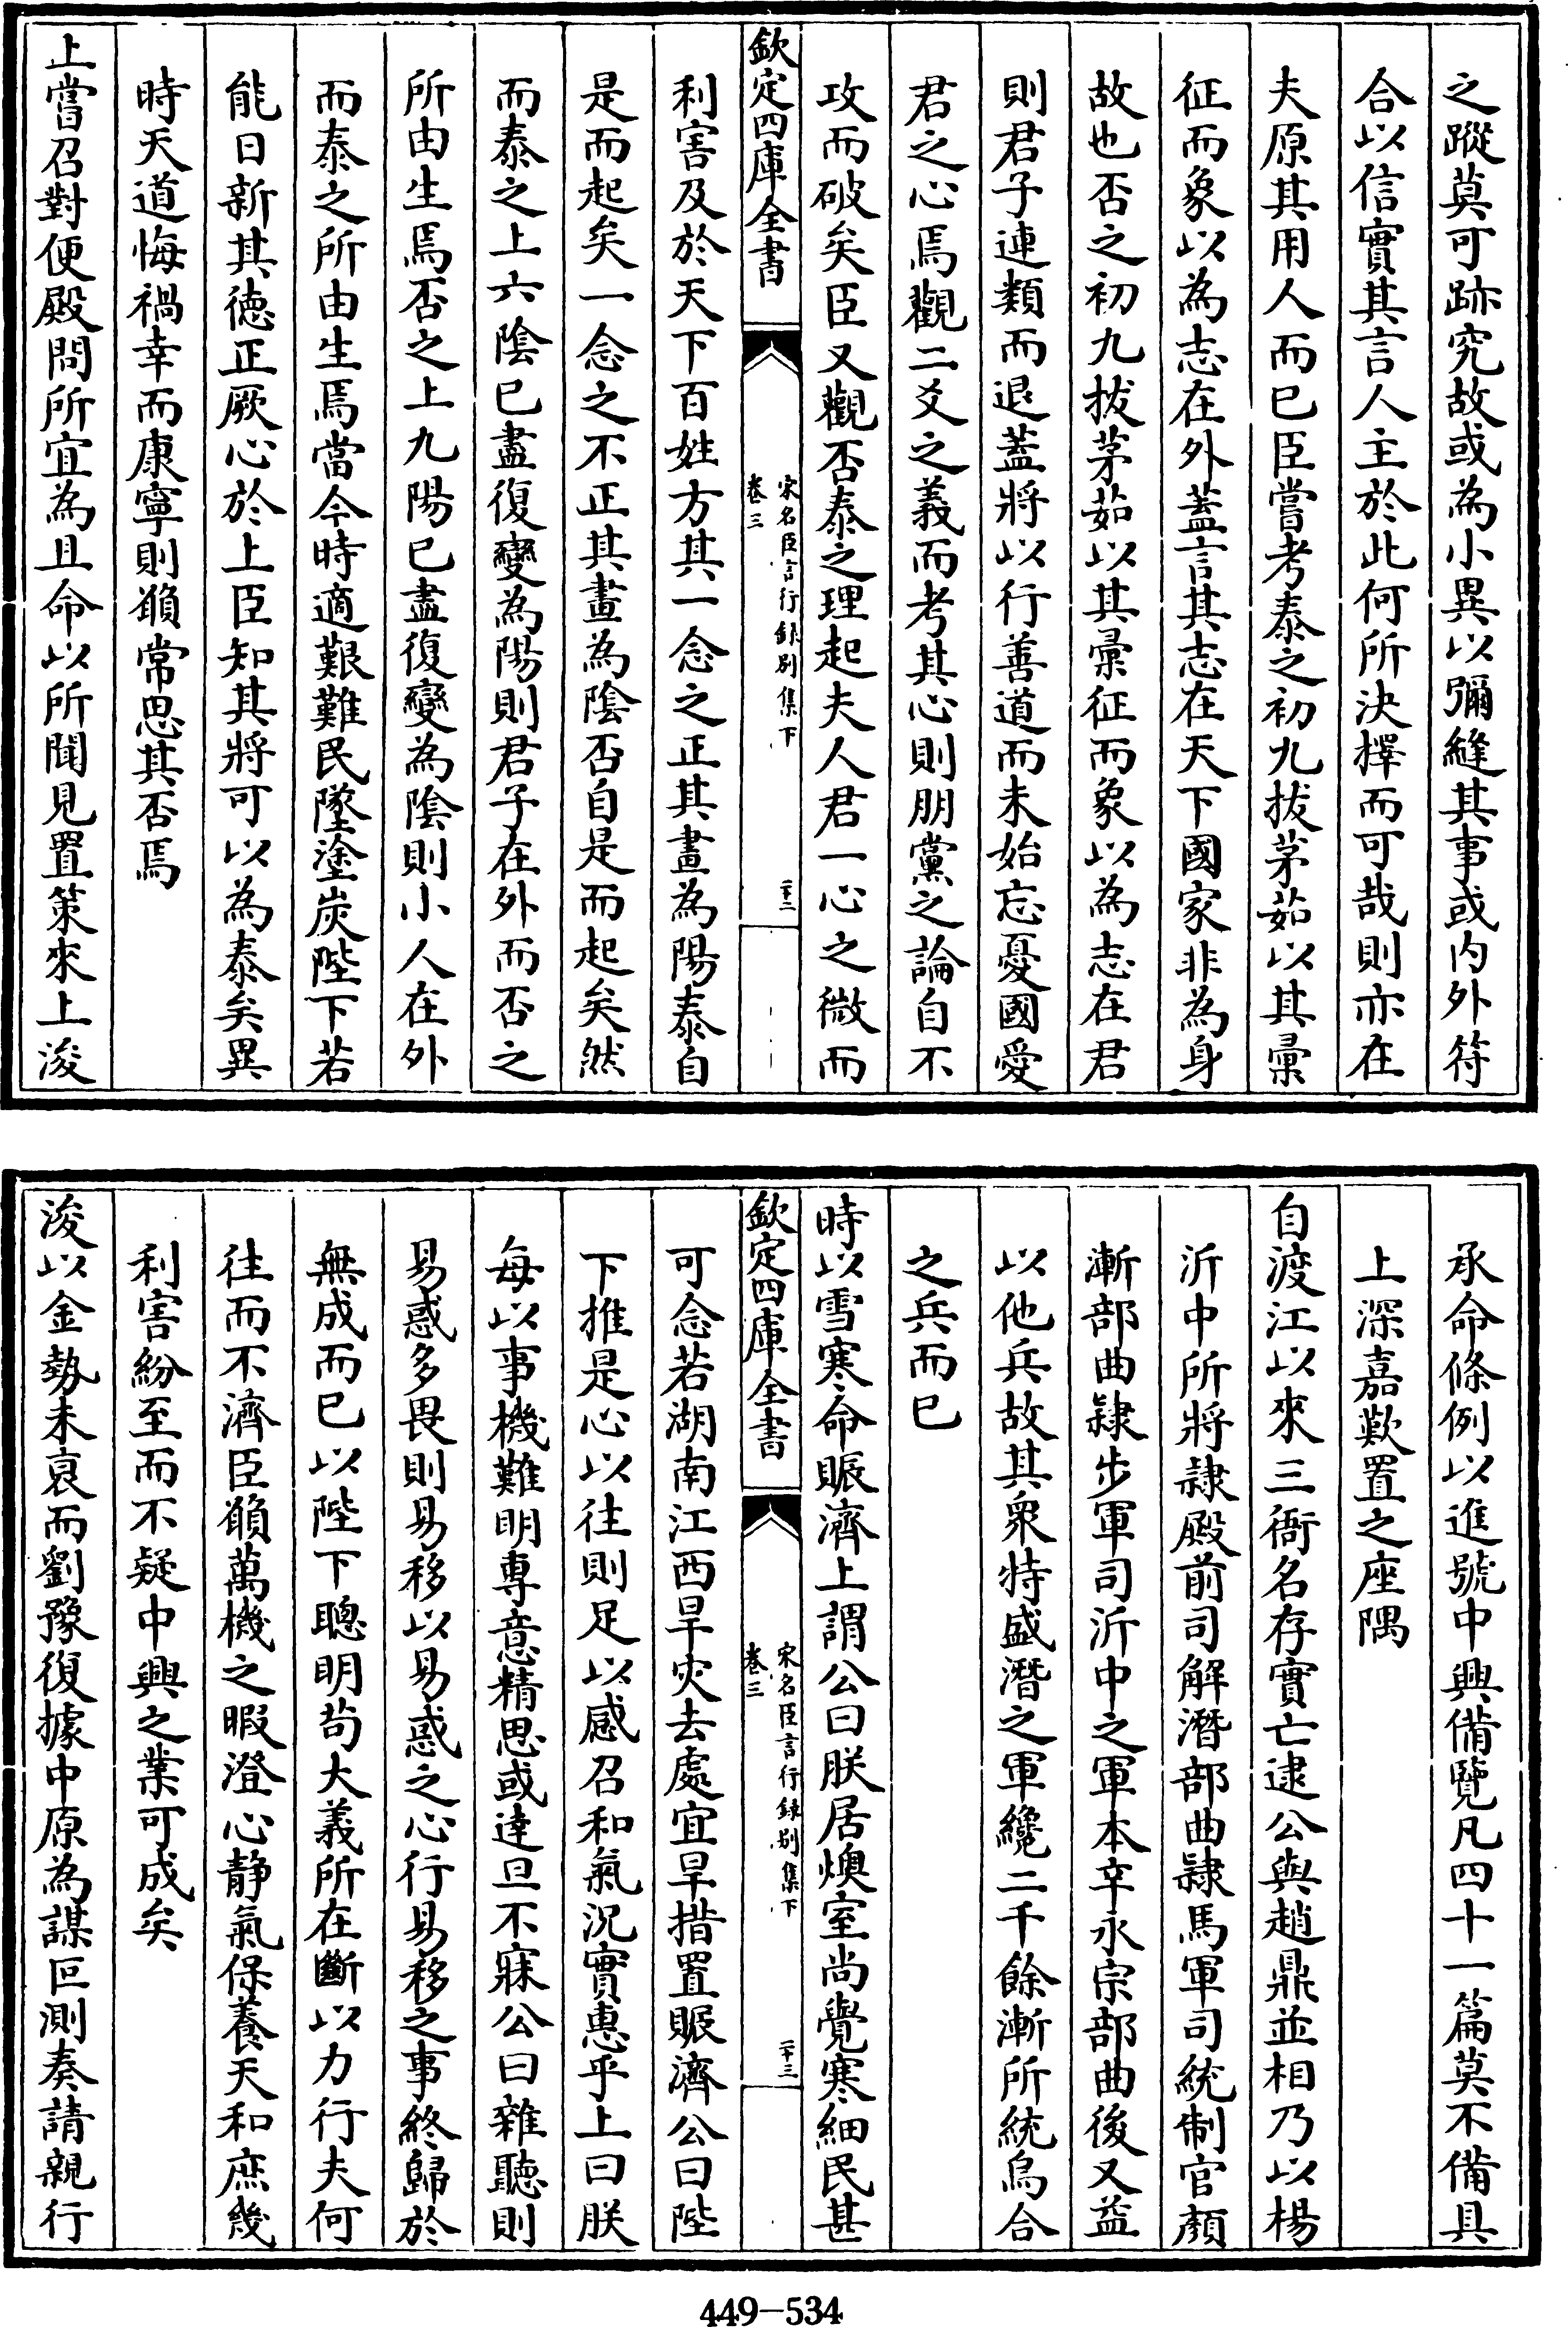 之蹤莫可跡究故或為小異以彌縫其事或内外符
合以信實其言人主於此何所決擇而可哉則亦在
夫原其用人而已臣嘗考泰之初九拔茅茹以其彚
征而象以為志在外蓋言其志在天下國家非為身
故也否之初九拔茅茹以其彚征而象以為志在君
則君子連類而退蓋將以行善道而未始忘憂國愛
君之心焉觀二爻之義而考其心則朋黨之論自不
攻而破矣臣又觀否泰之理起夫人君一心之微而
欽定四庫全書
宋名臣言行録别集下
卷三
二十二
利害及於天下百姓方其一念之正其畫為陽泰自
是而起矣一念之不正其畫為陰否自是而起矣然
而泰之上六陰已盡復變為陽則君子在外而否之
所由生焉否之上九陽已盡復變為陰則小人在外
而泰之所由生焉當今時適艱難民墜塗炭陛下若
能日新其徳正厥心於上臣知其將可以為泰矣異
時天道悔禍幸而康寧則願常思其否焉
上嘗召對便殿問所宜為且命以所聞見置策來上浚
承命條例以進號中興備覽凡四十一篇莫不備具
上深嘉歎置之座隅
自渡江以來三衙名存實亡逮公與趙鼎並相乃以楊
沂中所將隷殿前司解潛部曲隷馬軍司統制官顔
漸部曲隷步軍司沂中之軍本辛永宗部曲後又益
以他兵故其衆特盛潛之軍纔二千餘漸所統烏合
之兵而已
時以雪寒命賑濟上謂公曰朕居燠室尚覺寒細民甚
欽定四庫全書
宋名臣言行録别集下
卷三
二十三
可念若湖南江西旱灾去處宜早措置賑濟公曰陛
下推是心以往則足以感召和氣況實惠乎上曰朕
每以事機難明專意精思或達旦不寐公曰雜聽則
易惑多畏則易移以易惑之心行易移之事終歸於
無成而已以陛下聰明茍大義所在斷以力行夫何
往而不濟臣願萬機之暇澄心静氣保養天和庶幾
利害紛至而不疑中興之業可成矣
浚以金勢未衰而劉豫復據中原為謀叵測奏請親行
449-534